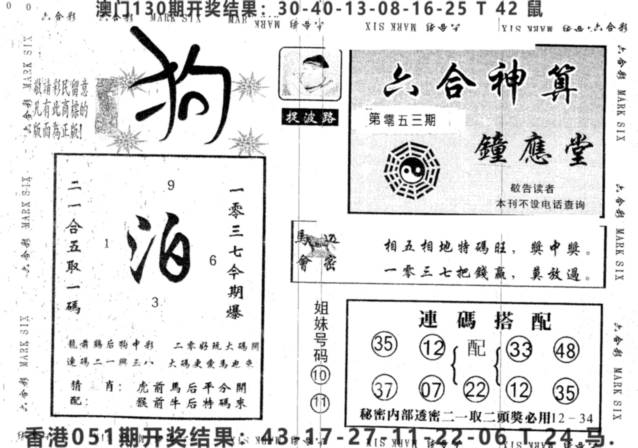 澳门130期开奖结果：30-40-13-08-16-25 T 42 鼠
六合彩 MARK SIX
敬请彩民留意
凡有此商標的
版面為正版!
狗
捉波路
六合神算
第零五三期
鐘應堂
敬告读者
本刊不设电话查询
二一合五取一碼
9
1
泊
6
3
一零三七今期爆
龍前鷄后狗中彩 二零好玩大碼開
連碼二一與三八 大碼更愛馬迎兔
猜 肖： 虎前馬后平分開
配： 猴前牛后特碼來
馬會
密
相五相地特碼旺，獎中獎。
一零三七把錢贏，莫放過。
姐妹号码
10
11
連碼搭配
35 12 配 33 48
37 07 22 12 35
秘密内部透密二一取二頭獎必用12－34
香港051期开奖结果：43-17-27-11-22-06 T 24 号.